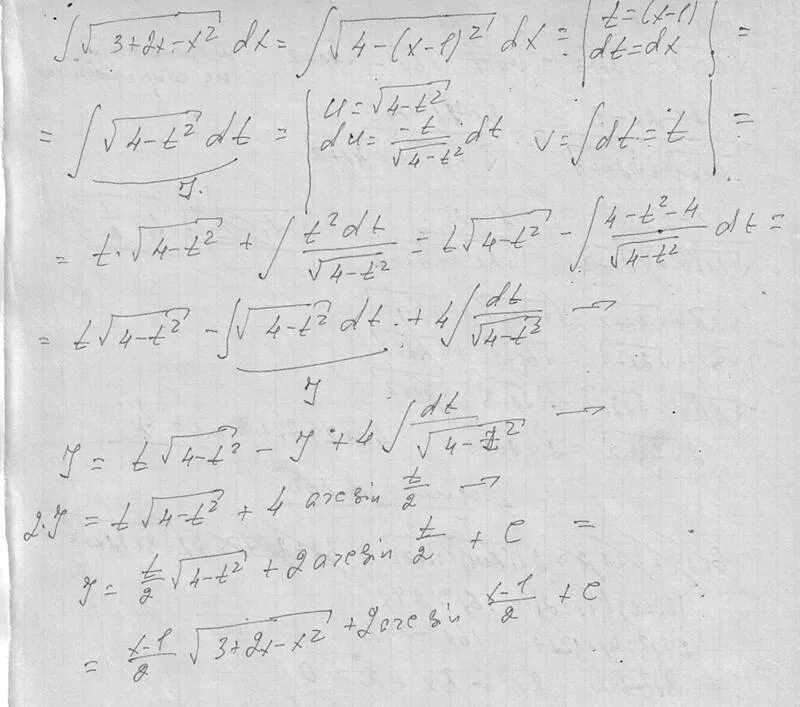 ∫√(3+2x−x²) dx = ∫√(4−(x−1)²) dx = | t=(x−1) dt=dx | =
= ∫√(4−t²) dt = | u=√(4−t²) du= −t/√(4−t²) dt v=∫dt=t | =
J.
= t·√(4−t²) + ∫ t²dt/√(4−t²) = t√(4−t²) − ∫ (4−t²−4)/√(4−t²) dt =
= t√(4−t²) − ∫√(4−t²) dt + 4∫ dt/√(4−t²) →
J
J = t√(4−t²) − J + 4∫ dt/√(4−t²) →
2·J = t√(4−t²) + 4 arcsin t/2 →
J = t/2 √(4−t²) + 2 arcsin t/2 + C =
= (x−1)/2 √(3+2x−x²) + 2 arcsin (x−1)/2 + C